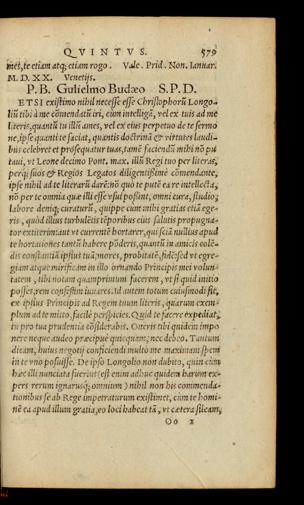 QVINTVS. 579
mes, te etiam atq; etiam rogo. Vale. Prid. Non. Ianuar.
M. D. XX. Venetijs.
P. B. Gulielmo Budæo S. P. D.
ETSI existimo nihil necesse esse Christophorũ Longo-
liũ tibi à me cõmendatũ iri, cum intelligã, vel ex tuis ad me
literis, quantũ tu illũ ames, vel ex eius perpetuo de te sermo
ne, ipse quanti te faciat, quantis doctrinã & virtutes laudi-
bus celebret et prosequatur tuas, tamẽ faciendũ mihi nõ pu
taui, vt Leone decimo Pont. max. illũ Regi tuo per literas,
perq; suos & Regios Legatos diligentissimè cõmendante,
ipse nihil ad te literarũ darẽ: nõ quò te putẽ ea re intellecta,
nõ per te omnia quæ illi esse vsui possint, omni cura, studio,
labore deniq; curaturũ, quippe cum mihi gratias etiã ege-
ris, quòd illius turbulẽtis tẽporibus eius salutis propugna-
tor extiterim: aut vt currentẽ hortarer, qui sciã nullius apud
te hortationes tantũ habere põderis, quantũ in amicis colẽ-
dis constantiã ipsius tuã, mores, probitatẽ, fidẽ: sed vt egre-
giam atque mirificam in illo ornando Principis mei volun-
tatem, tibi notam quamprimùm facerem, vt si quid initio
posset, rem confestim iuuares. Id autem totum cuiusmodi sit,
ex ipsius Principis ad Regem tuum literis, quarum exem-
plum ad te mitto, facilè perspicies. Quid te facere expediat,
tu pro tua prudentia cõsiderabis. Oneris tibi quidem impo
nere neque audeo præcipuè quicquam, nec debeo. Tantùm
dicam, huius negotij conficiendi multo me maximam spem
in te vno posuisse. De ipso Longolio non dubito, quin cùm
hæc illi nunciata fuerint (est enim adhuc quidem harum ex-
pers rerum ignarusq; omnium) nihil non his commenda-
tionibus se ab Rege impetraturum existimet, cùm te homi-
nẽ ea apud illum gratia, eo loci habeat tã, vt cætera sileam,
Oo 2